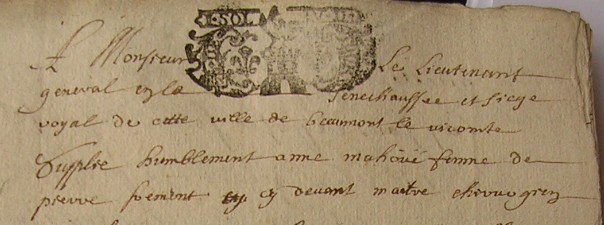 1. SOL.
A Monsieur Le Lieutenant
general en la senechaussee et siege
royal de cette ville de beaumont le vicomte
Supplie humblement anne mahoüé femme de
pierre forement cy devant maitre